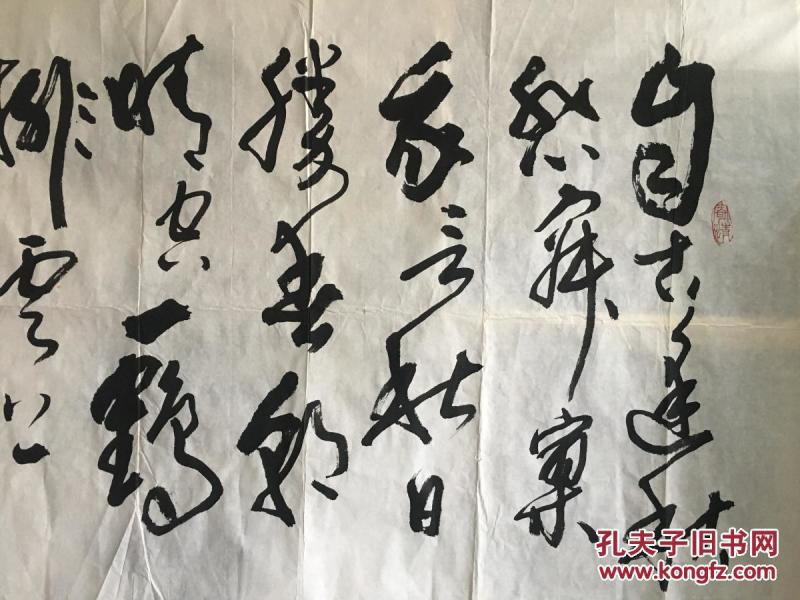 自古逢秋
悲寂寞
我言秋日
胜春朝
晴空一鹤
排云上
孔夫子旧书网
www.kongfz.com